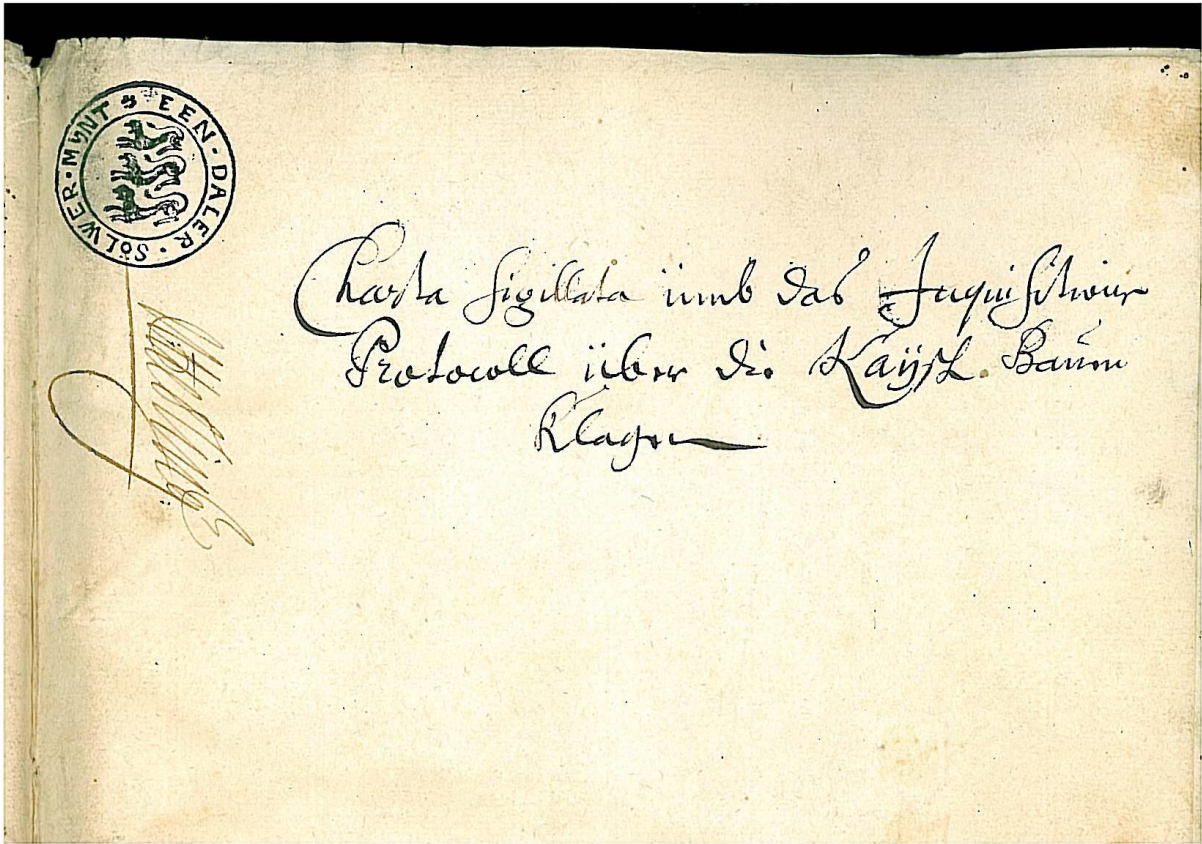 EEN · DALER · SÖLWER · MŸNT
Charta Sigillata ümb das Inquisitions
Protocoll über die Kaÿsl. Baurn
Klagen